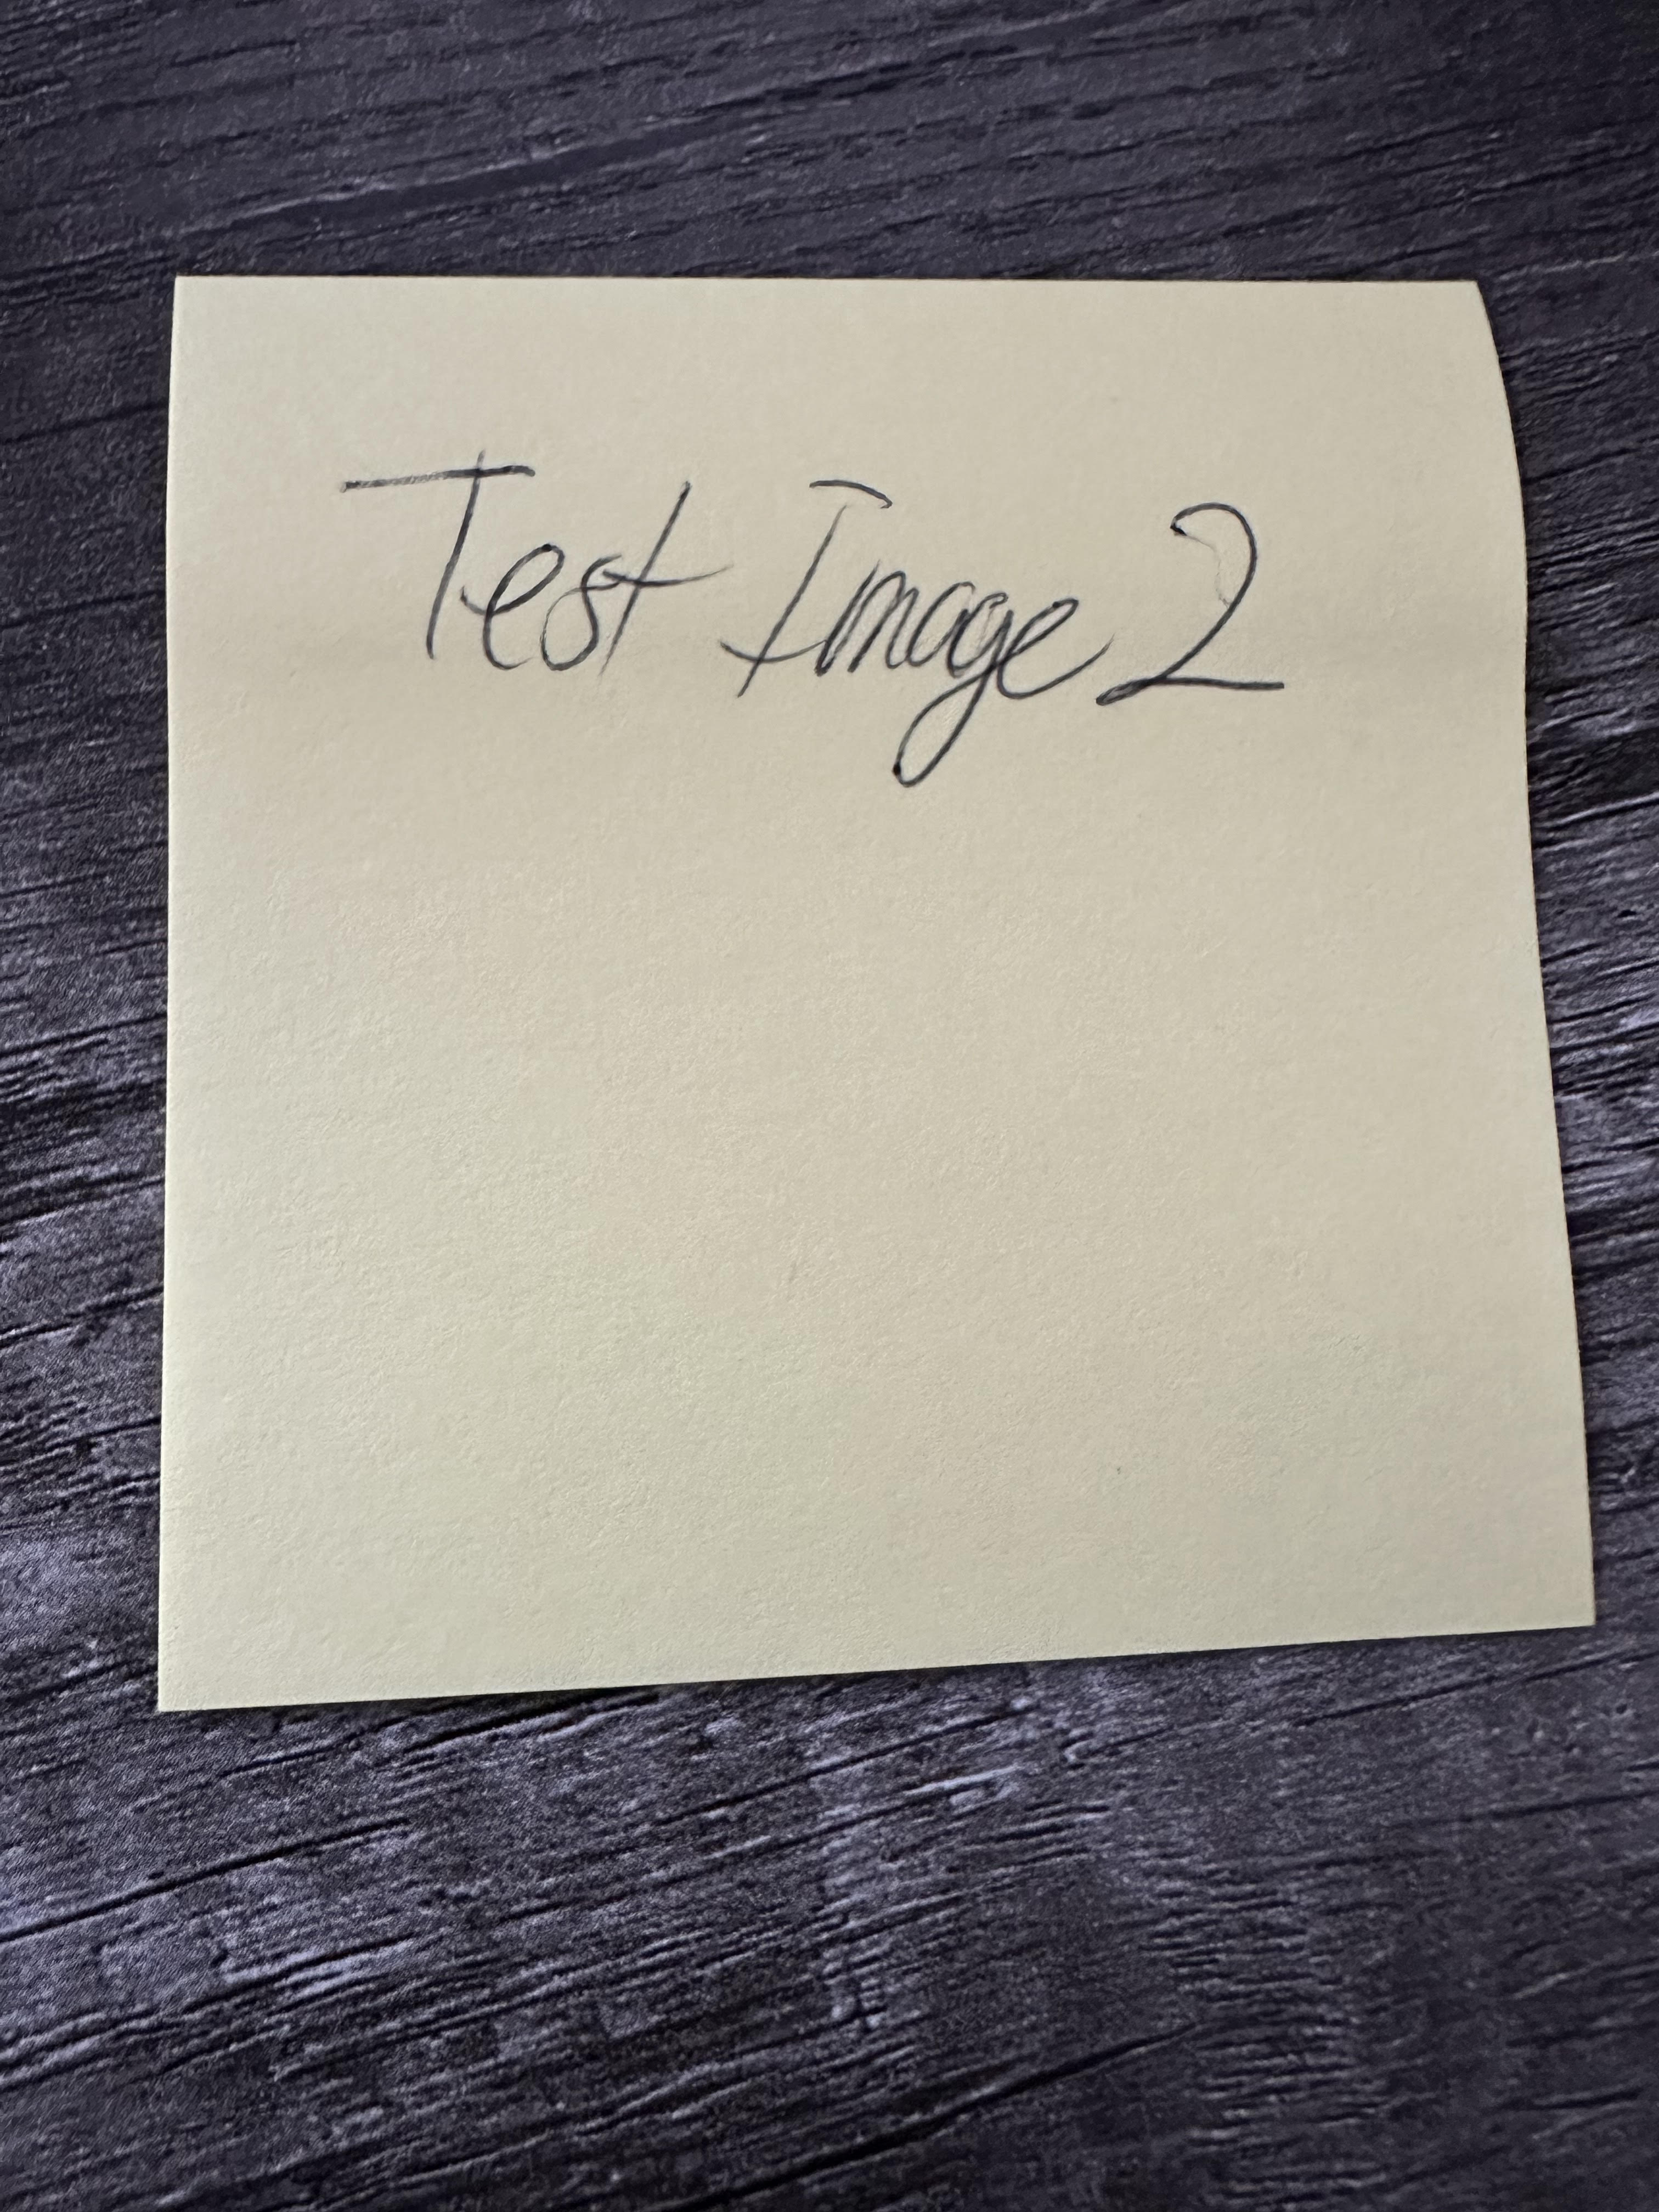 Test Image 2